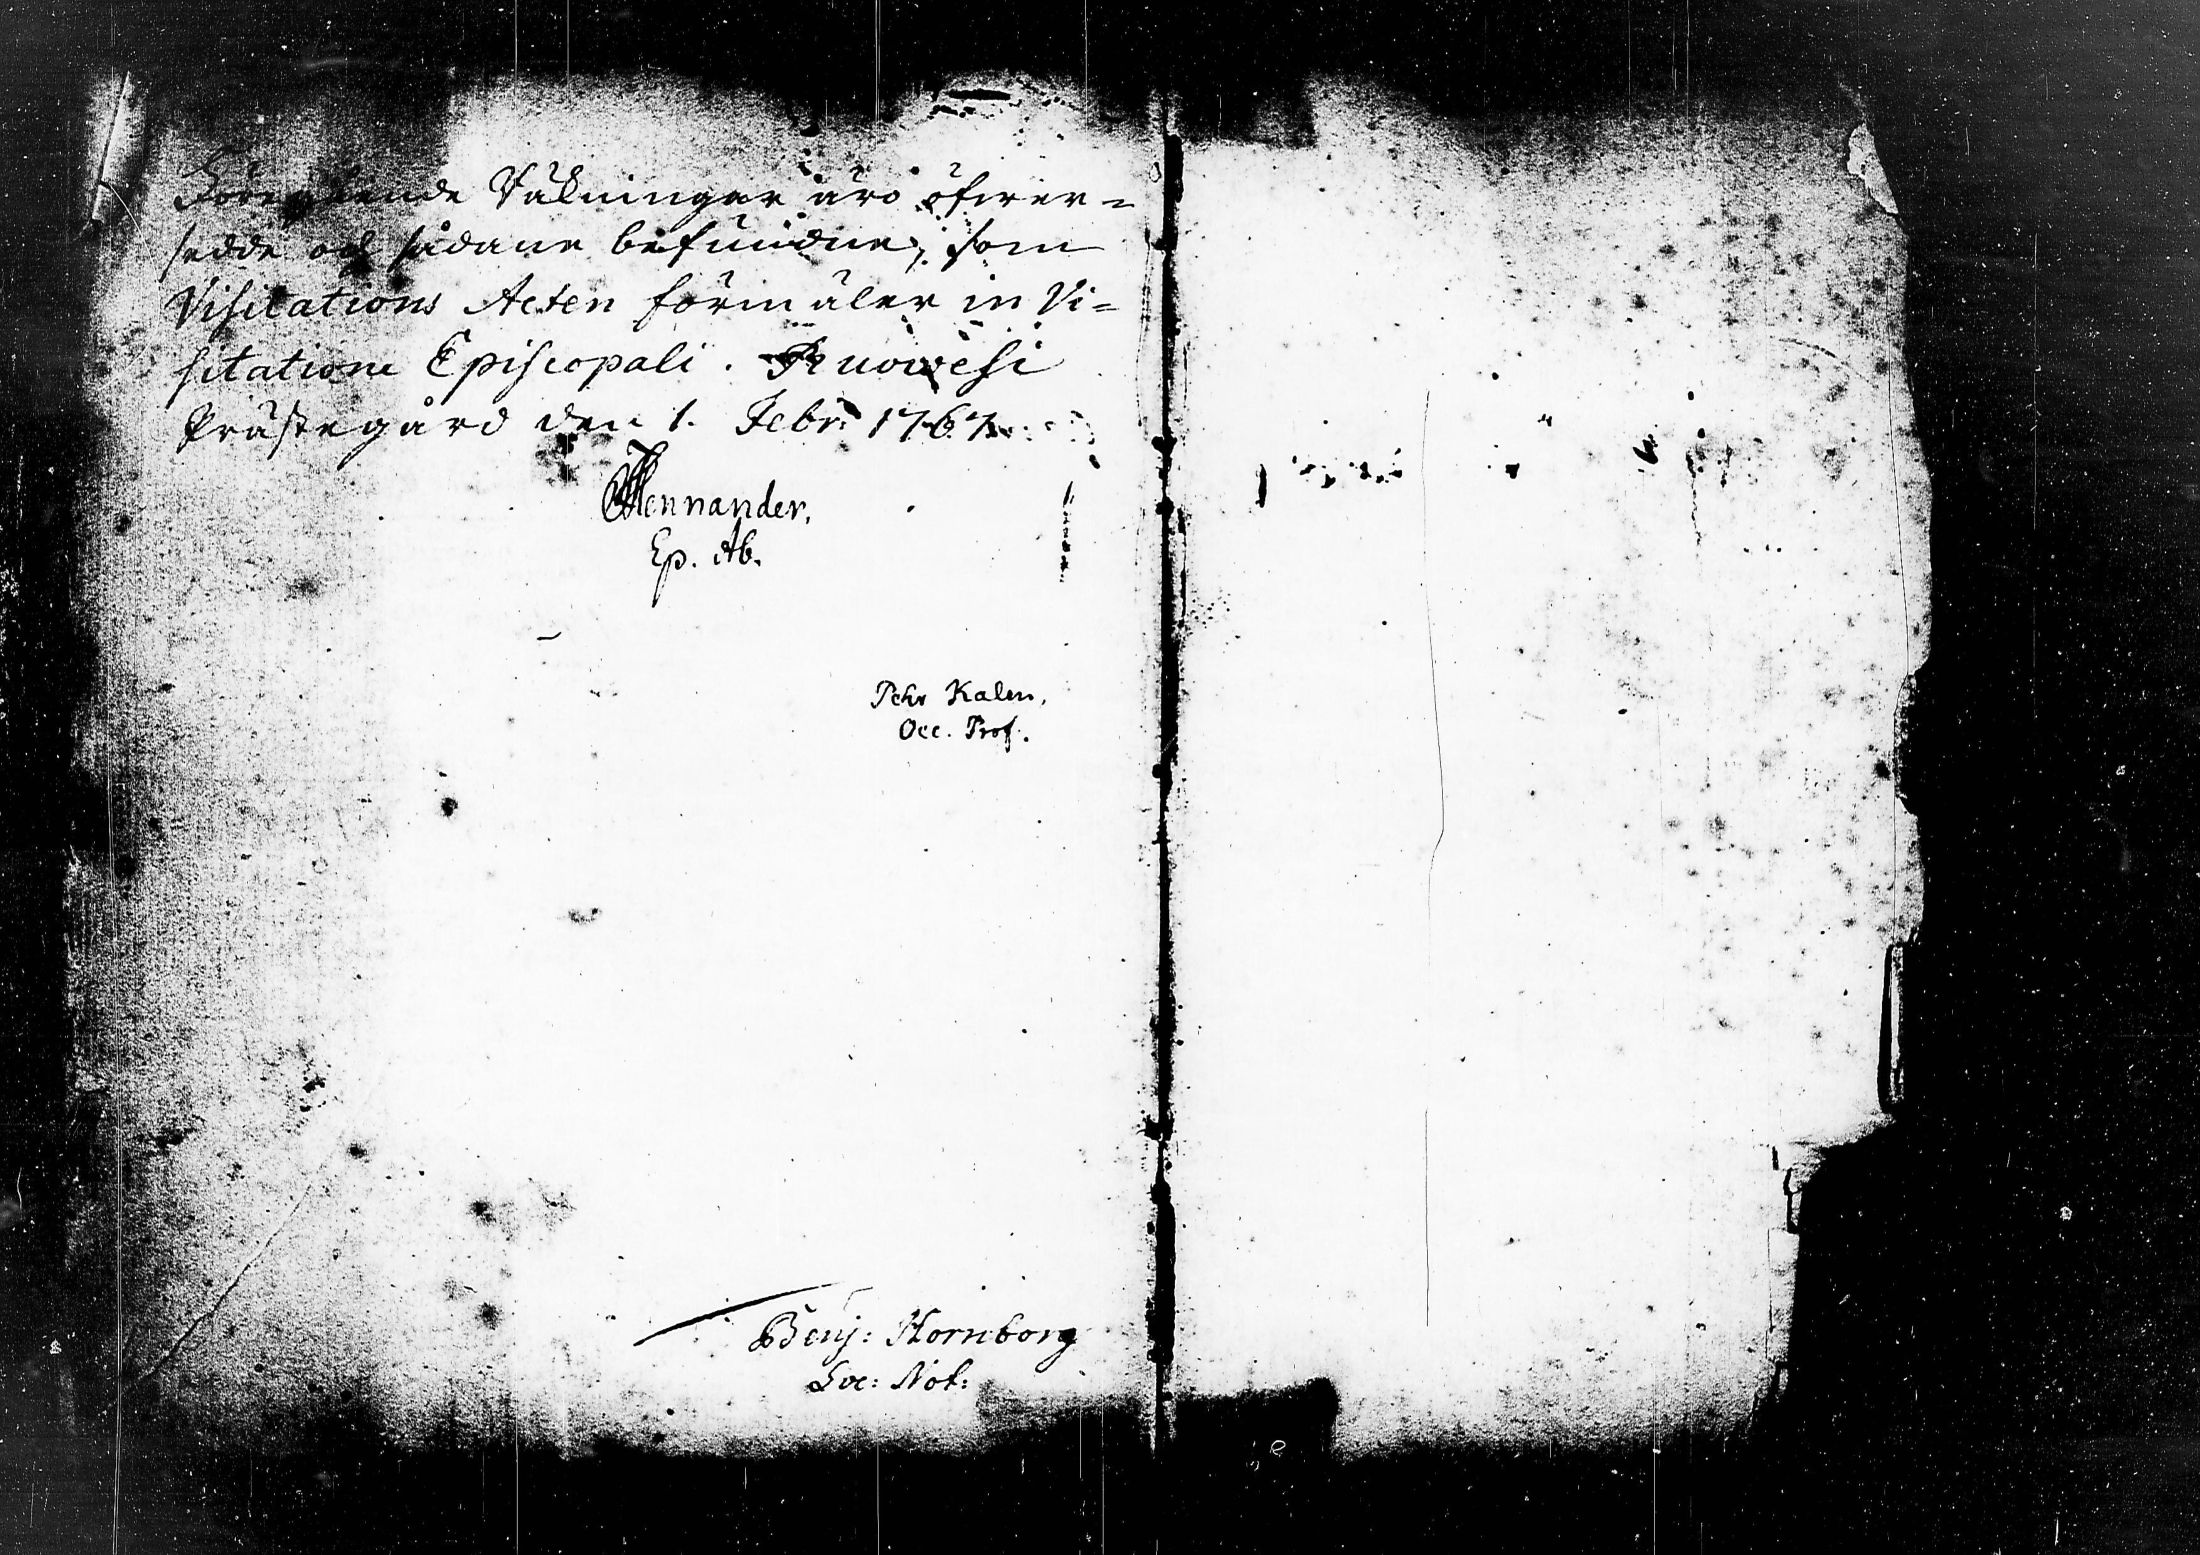 Föregående Räkningar äro öfwer=
sedde och sådane befundne, som
Visitations Acten förmäler in Vi=
sitatione Episcopali. Ruowesi
Prästegård den 1. Febr: 1767.
Mennander,
Ep. Ab.
Pehr Kalm,
Oec. Prof.
Benj: Hornborg
Not: